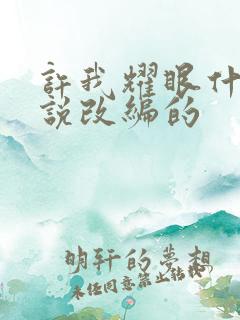 許我耀眼什
說改編的
明轩的夢想
未经同意禁止转载